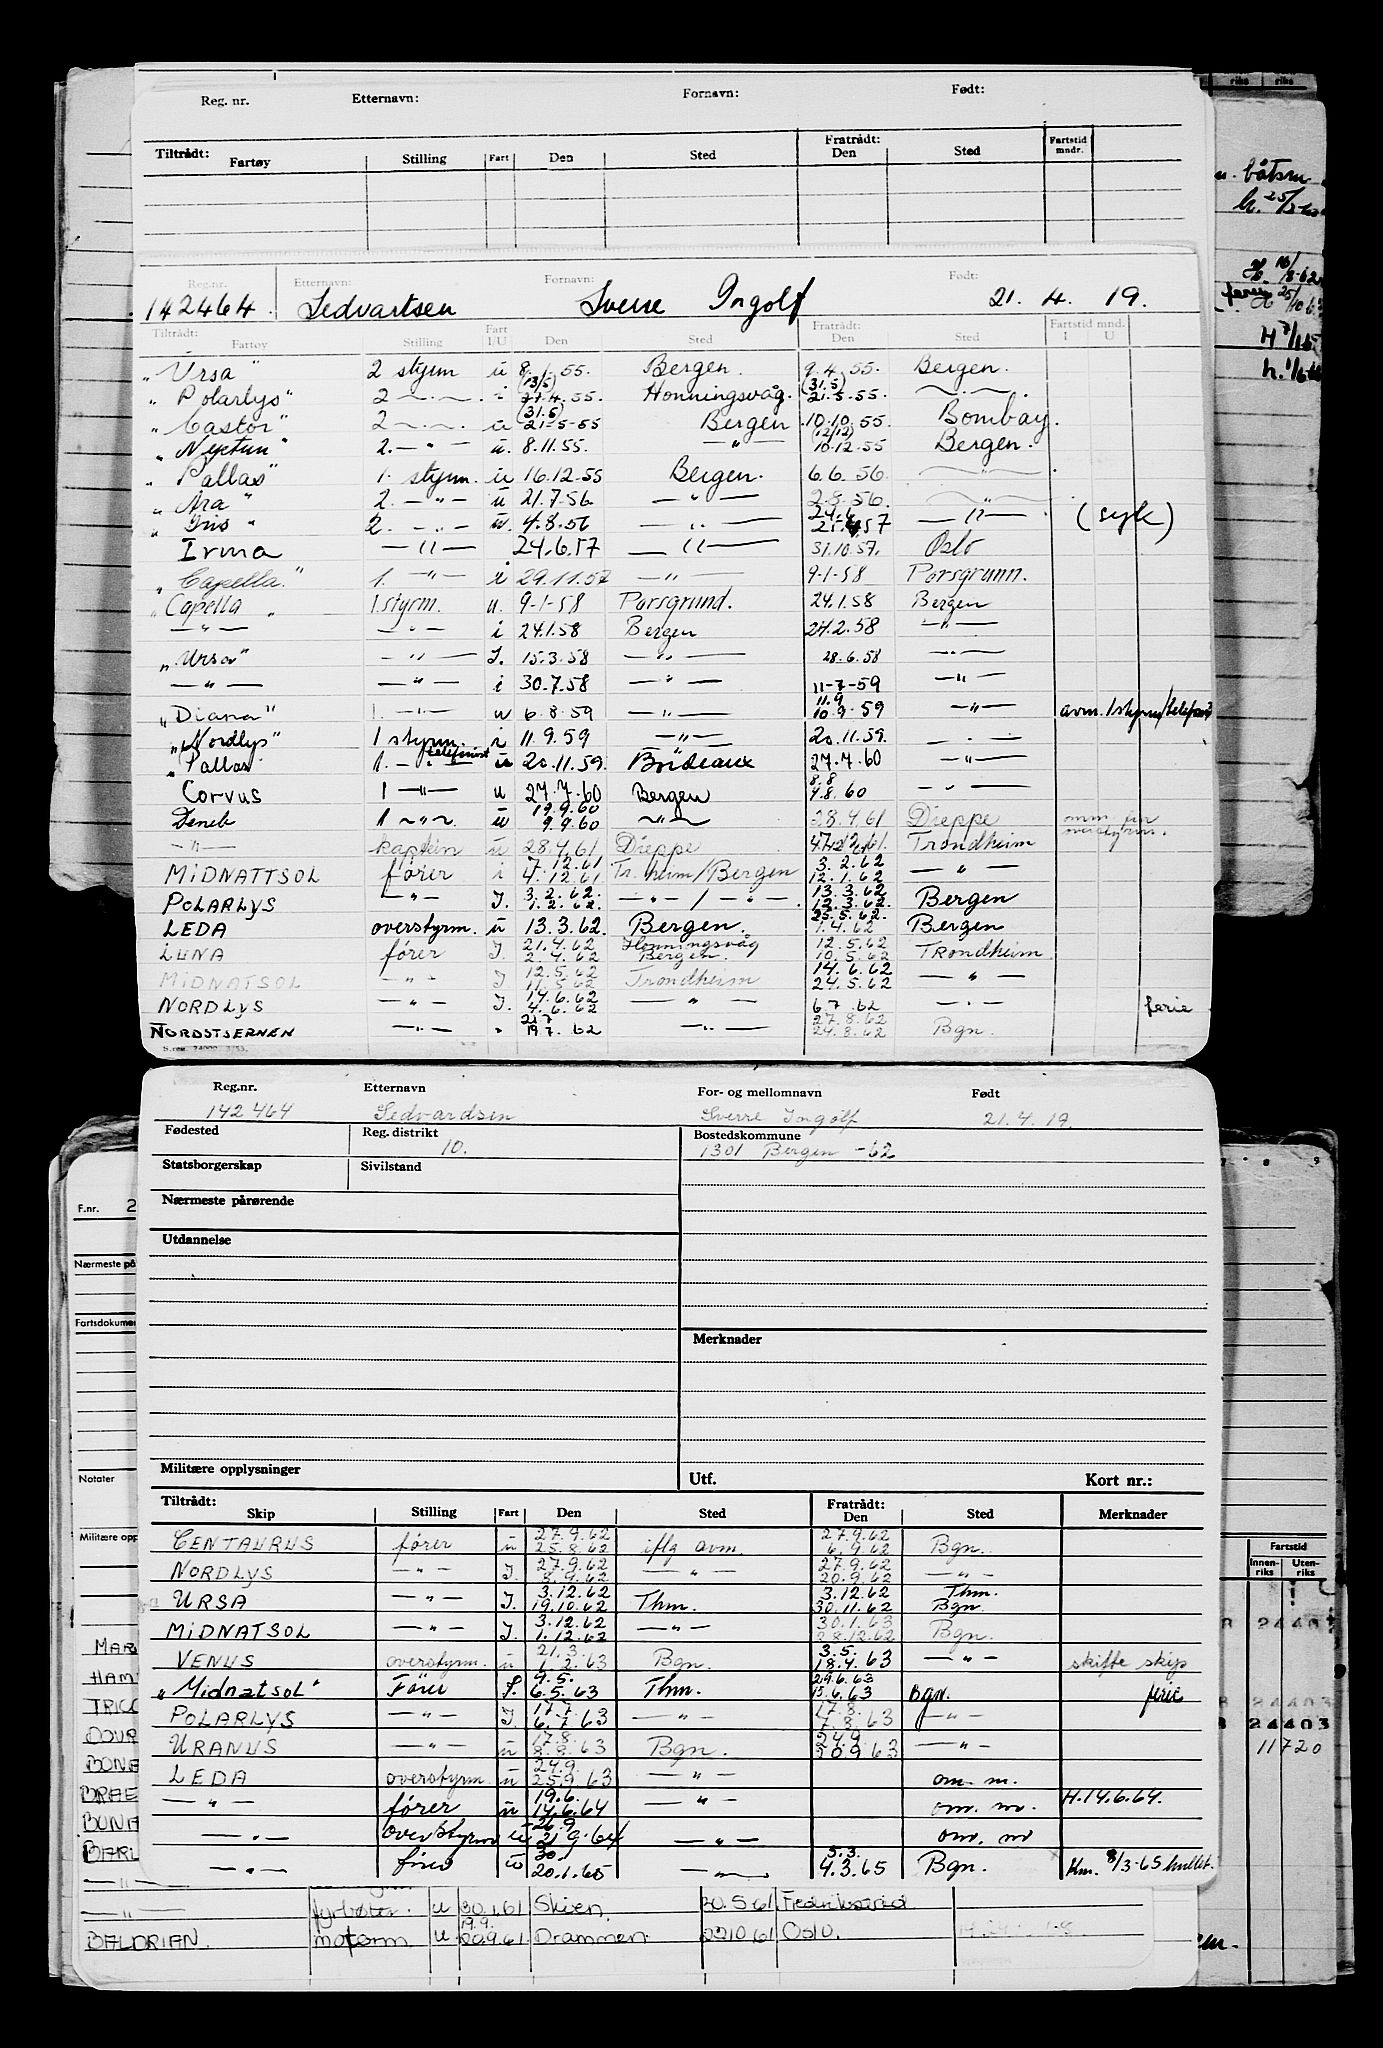 Reg. nr. Etternavn: Fornavn: Født:
Tiltrådt: Fartøy Stilling Fart Den Sted Fratrådt: Den Sted Fartstid mndr.
riks riks
båtsm
Reg.nr. Etternavn: Fornavn: Født:
142464 Sedvartsen Sverre Ingolf 21. 4. 19.
Tiltrådt: Fartøy Stilling Fart I/U Den Sted Fratrådt: Den Sted Fartstid mnd. I U
"Ursa" 2 styrm u 8.1.55. Bergen. 9.4.55. Bergen.
"Polarlys" 2 —.—. i (13/5) 27.4.55. Honningsvåg. (31.5) 21.5.55. —.—.
"Castor" 2 —.—. u (31.5) 21-5-55 Bergen 10.10.55. Bombay.
"Neptun" 2. — " — u. 8.11.55. — " — (12/12) 10.12.55 Bergen.
"Pallas" 1. styrm. u 16.12.55 Bergen. 6.6.56. — " —
"Ara" 2. — " — u 21.7.56 — " — 2.8.56. — " —
"Iris" 2. — " — u. 4.8.56 — " — 24.6 57 — " — (syk)
Irma — " — 24.6.57 — " — 31.10.57. Oslo
"Capella" 1. — " — i 29.11.57 — " — 9-1-58 Porsgrunn.
"Capella" 1 styrm. u. 9-1-58 Porsgrund. 24.1.58 Bergen
— " — — " — i 24.1.58 Bergen 24.2.58 — " —
"Ursa" — " — I. 15.3.58 — " — 28.6.58 — " —
— " — — " — i 30.7.58 — " — 11-7-59 — " —
"Diana" 1. — " — u 6.8.59 — " — 11.9 10.9.59 — " — avm. 1 styrm/telefonist
"Nordlys" 1 styrm. i 11.9.59 — " — 20.11.59. — " —
"Pallas" 1. — " — telefonist u 20.11.59. Bordeaux 27.7.60 — " —
Corvus 1 — " — u 27.7.60 Bergen 8.8 4.8.60 — " —
Deneb 1 — " — u 19.9.60 9.9.60 — " — 28.4.61 Dieppe omm fra overstyrm.
— " — kaptein u 28.4.61 Dieppe Trondheim
MIDNATTSOL fører i 7.12.61 4.12.61 Tr.heim/Bergen 3.2.62 12.1.62 — " —
POLARLYS — " — I. 3.2.62. 1.2.62. — " — / — " — 13.3.62 12.3.62. Bergen
LEDA overstyrm. u 13.3.62. Bergen. 25.5.62. 1.4.62 Bergen
LUNA fører I. 21.4.62 2.4.62 Honningsvåg Bergen. 12.5.62 10.5.62 TRondheim
MIDNATSOL — " — I 12.5.62 11.5.62 Trondheim 14.6.62 24.5.62 — " —
NORDLYS — " — I. 14.6.62 4.6.62 — " — 6.7.62 — " — ferie
NORDSTJERNEN — " — " 21.7 19.7.62 — " — 27.8.62 24.8.62 Bgn.
Reg.nr. Etternavn For- og mellomnavn Født
142464 Sedvardsen Sverre Ingolf 21.4.19
Fødested Reg. distrikt Bostedskommune
10. 1301 Bergen -62
Statsborgerskap Sivilstand
Nærmeste pårørende
Utdannelse
Merknader
Militære opplysninger Utf. Kort nr.:
Tiltrådt: Skip Stilling Fart Den Sted Fratrådt: Den Sted Merknader
CENTAURUS fører u 27.9.62 25.8.62 iflg avm. 27.9.62 6.9.62 Bgn.
NORDLYS — " — I. 27.9.62 8.9.62 — " — 27.9.62 20.9.62 — " —
URSA — " — I 3.12.62 19.10.62 Thm. 3.12.62 30.11.62 Thm. Bgn.
MIDNATSOL — " — I. 3.12.62 1.12.62 — " — 30.1.63 28.12.62 Bgn.
VENUS overstyrm. u 21.3. 1.2.63 Bgn. 3.5. 18.4.63 — " — skifte skip
"Midnatsol" Fører I. 9.5. 6.5.63 Thm. 29.6.63 15.6.63 Bgn. ferie
POLARLYS — " — I. 17.7. 6.7.63 — " — 17.8. 7.8.63 — " —
URANUS — " — u 17.8. 8.8.63 Bgn. 24.9. 20.9.63 — " —
LEDA overstyrm. u 24.9. 25.9.63 — " — om. m.
— " — fører u 19.6. 14.6.64 — " — om. m. H. 14.6.64.
— " — overstyrm u 26.9 21.9.64 — " — om. m
— " — fører u 30.1 20.1.65 — " — 5.3. 4.3.65 Bgn. Km. 8/3-65 hullet.
fyrbøter. u 30.1.61 Skien. 30.5.61 Fredrikstad
BALDRIAN. motorm u 19.9. 20.9.61 Drammen 22.10.61 Oslo.
F.nr. 2
Nærmeste på
Fartsdokumen
Notater
Militære opp
Fartstid
Innen-riks Uten-riks
24403
24403
11720